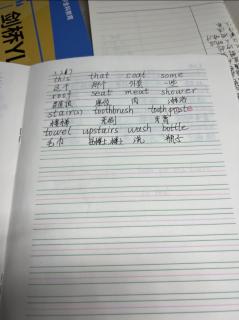 剑桥YL
this that coat some
这个 那个 外套 一些
roof seat meat shower
屋顶 座位 肉 淋浴
stairs toothbrush toothpaste
楼梯 牙刷 牙膏
towel upstairs wash bottle
毛巾 在楼上 洗 瓶子